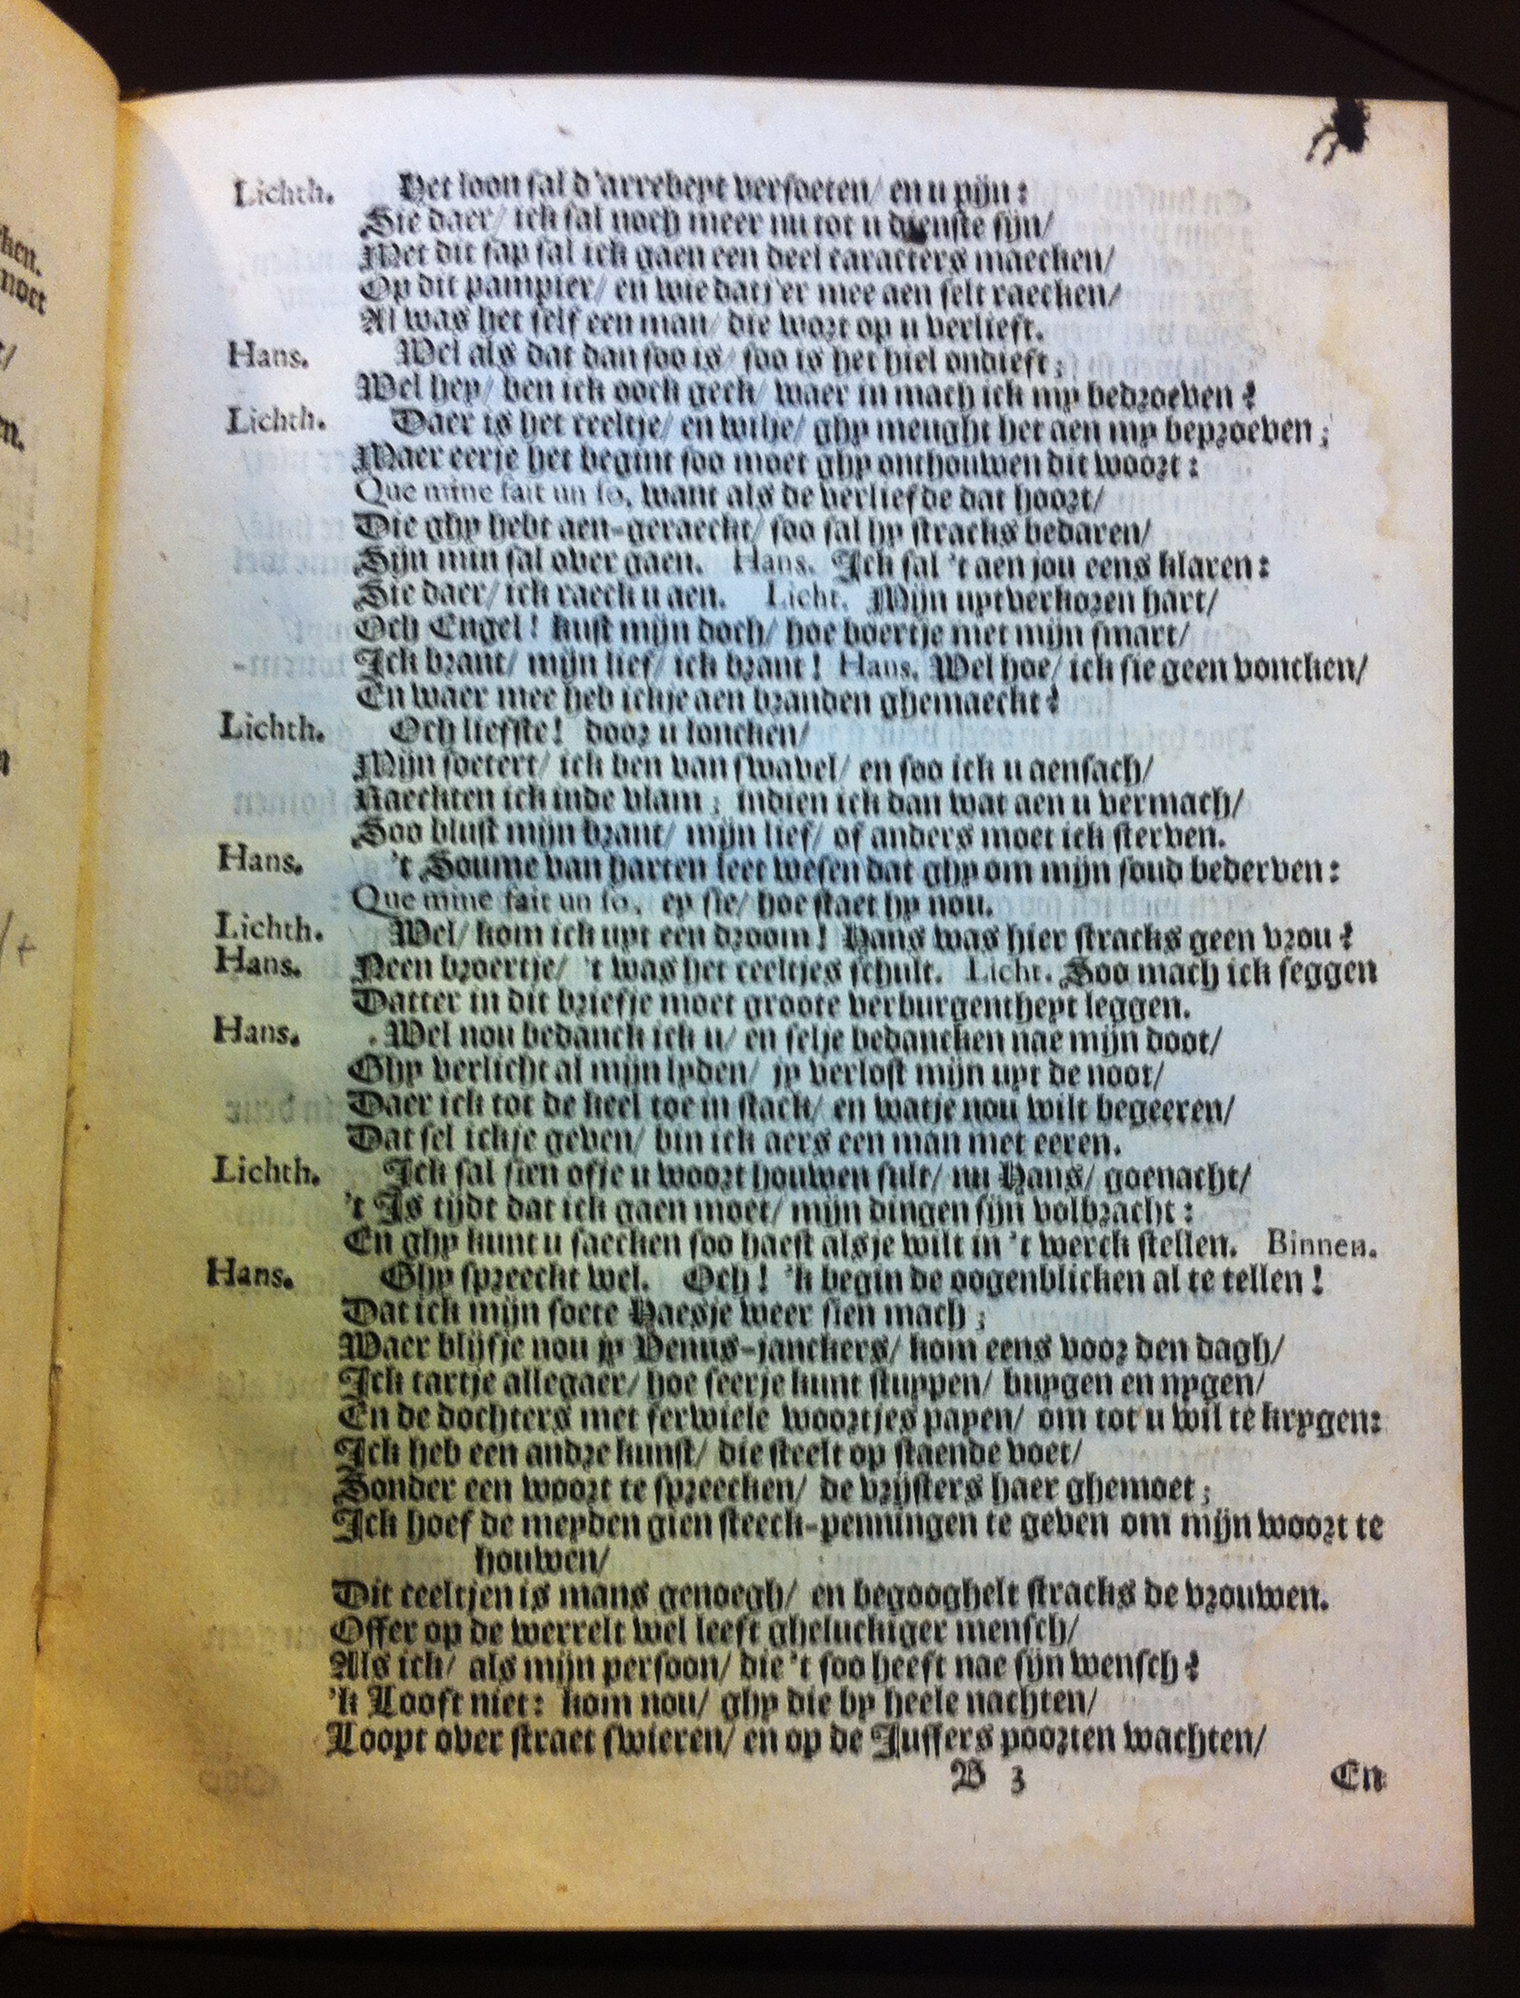 ken.
moet
t/
en.
n
/+
Lichth. Het loon sal d'arrebeyt versoeten/ en u pijn:
Sie daer/ ick sal noch meer nu tot u dienste sijn/
Met dit sap sal ick gaen een deel caracters maecken/
Op dit pampier/ en wie datj'er mee aen selt raecken/
Al was het self een man/ die wort op u verlieft.
Hans. Wel als dat dan soo is/ soo is het hiel ondieft;
Wel hey/ ben ick oock geck/ waer in mach ick my bedroeven?
Lichth. Daer is het ceeltje/ en wilje/ ghy meught het aen my beproeven;
Maer eerje het begint soo moet ghy onthouwen dit woort:
Que mine fait un so, want als de verliefde dat hoort/
Die ghy hebt aen-geraeckt/ soo sal hy stracks bedaren/
Sijn min sal over gaen. Hans. Ick sal 't aen jou eens klaren:
Sie daer/ ick raeck u aen. Licht. Mijn uytverkoren hart/
Och Engel! kust mijn doch/ hoe boertje met mijn smart/
Ick brant/ mijn lief/ ick brant! Hans. Wel hoe/ ick sie geen voncken/
En waer mee heb ickje aen branden ghemaeckt?
Lichth. Och liefste! door u loncken/
Mijn soetert/ ick ben van swavel/ en soo ick u aensach/
Raeckten ick inde vlam; indien ick dan wat aen u vermach/
Soo blust mijn brant/ mijn lief/ of anders moet ick sterven.
Hans. 't Soume van harten leet wesen dat ghy om mijn soud bederven:
Que mine fait un so, ey sie/ hoe staet hy nou.
Lichth. Wel/ kom ick uyt een droom! Hans was hier stracks geen vrou?
Hans. Neen broertje/ 't was het ceeltjes schult. Licht. Soo mach ick seggen
Datter in dit briefje moet groote verburgentheyt leggen.
Hans. Wel nou bedanck ick u/ en selje bedancken nae mijn doot/
Ghy verlicht al mijn lyden/ jy verlost mijn uyt de noot/
Daer ick tot de keel toe in stack/ en watje nou wilt begeeren/
Dat sel ickje geven/ bin ick aers een man met eeren.
Lichth. Ick sal sien ofje u woort houwen sult/ nu Hans/ goenacht/
't Is tijdt dat ick gaen moet/ mijn dingen sijn volbracht:
En ghy kunt u saecken soo haest alsje wilt in 't werck stellen. Binnen.
Hans. Ghy spreeckt wel. Och! 'k begin de oogenblicken al te tellen!
Dat ick mijn soete Haesje weer sien mach;
Waer blijfje nou jy Venus-janckers/ kom eens voor den dagh/
Ick tartje allegaer/ hoe seerje kunt stuypen/ buygen en nygen/
En de dochters met ferwiele woortjes payen/ om tot u wil te krygen:
Ick heb een andre kunst/ die steelt op staende voet/
Sonder een woort te spreecken/ de vrijsters haer ghemoet;
Ick hoef de meyden gien steeck-penningen te geven om mijn woort te
houwen/
Dit ceeltjen is mans genoegh/ en begooghelt stracks de vrouwen.
Offer op de werrelt wel leeft gheluckiger mensch/
Als ick/ als mijn persoon/ die 't soo heeft nae sijn wensch?
'k Looft niet: kom nou/ ghy die by heele nachten/
Loopt over straet swieren/ en op de Juffers poorten wachten/
B 3 En